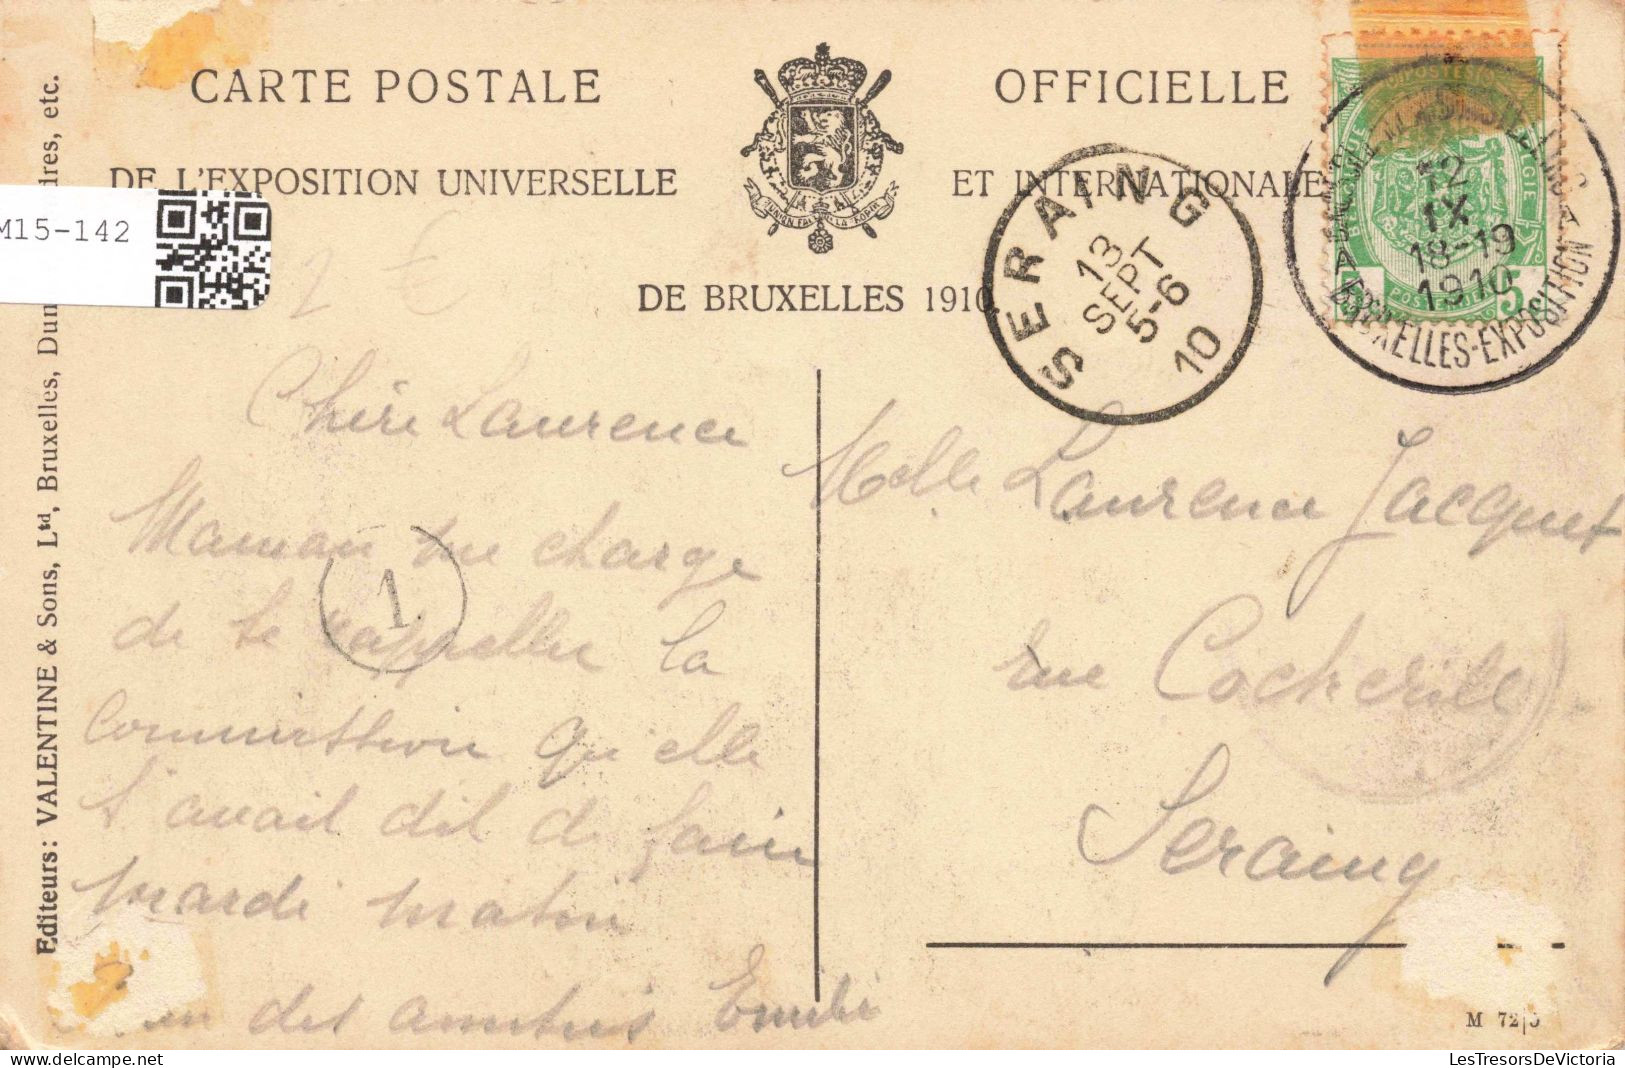 CARTE POSTALE OFFICIELLE
DE L'EXPOSITION UNIVERSELLE ET INTERNATIONALE
DE BRUXELLES 1910
L'UNION FAIT LA FORCE
M15-142
2 €
Editeurs: VALENTINE & Sons, Ltd, Bruxelles, Dun ires, etc.
SERAING
13
SEPT
5-6
10
BELGIQUE BELGIE
5
12
IX
18-19
1910
A BRUXELLES-EXPOSITION A
1
Chère Laurence
Maman me charge
de te rappeller la
commission qu'elle
t'avait dit de faire
mardi matin
des amitiés Emile
Melle Laurence Jacquet
rue Cockerill
Seraing
M 72
LesTresorsDeVictoria